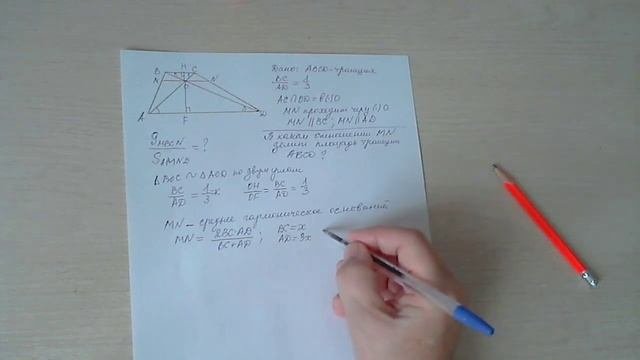 B H C
M O N
A F D
Дано: ABCD-трапеция
BC/AD = 1/3
AC∩BD = в(·)O
MN проходит через (·)O
MN∥BC; MN∥AD
В каком отношении MN
делит площадь трапеции
ABCD?
S_MBCN/S_AMND = ?
△BOC ~ △AOD по двум углам
BC/AD = 1/3 x OH/OF = BC/AD = 1/3
MN – среднее гармоническое оснований
MN = 2BC·AD/BC+AD; BC=x
AD=3x